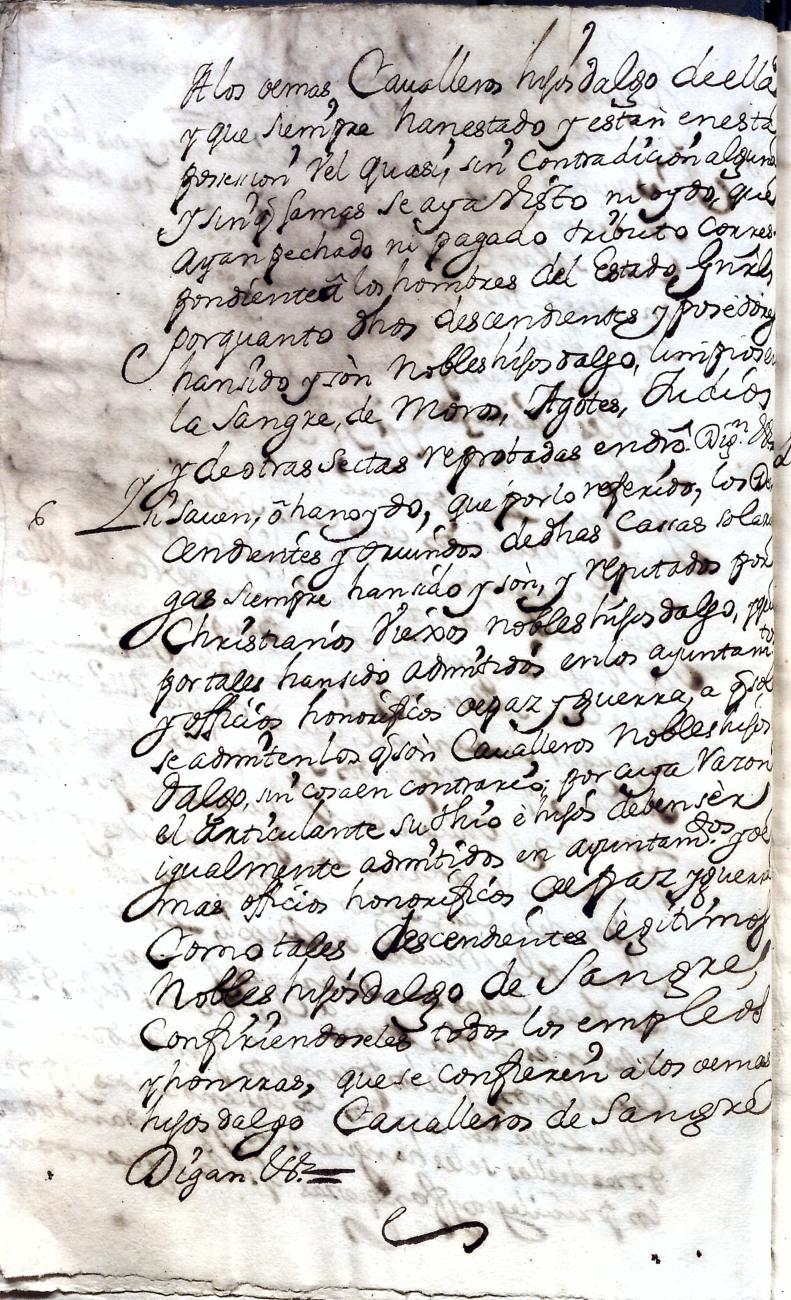 A los demas Cavalleros hijos dalgo de ella
y que siempre han estado y están en esta
posession vel quasi, sin contradición alguna
y sin q̃ Jamas se aya visto ni oydo, que
ayan pechado ni pagado tributo corres-
pondiente â los hombres del Estado Gñral
porquanto dhos descendientes y posedores
han sido y sòn Nobles hijos dalgo, limpios en
la Sangre, de Moros, Agotes, Judios
y de otras Sectas reprobadas en dro. Digⁿ &ª
6 Yh Saven, ò han oydo, que por lo referido, los Des
cendientes y oriundos de dhas Cassas solarie
gas siempre han sido y sòn, y reputados por
Christianos Viejos nobles hijos dalgo, y que
por tales han sido admitidos en los ayuntam.tos
y officios honorificos de paz y guerra, a q̃ solo
se admiten los q̃ sòn Cavalleros Nobles hijos
dalgo, sin cosa en contrario; por cuya razon
el articulante su thio è hijos deben sèr
igualmente admitidos en ayuntam.tos y de
mas officios honorificos de paz y guerra
Como tales descendientes legitimos
Nobles hijos dalgo de Sangre,
Confiriendoseles todos los empleos
y honrras, que se confieren à los demas
hijos dalgo Cavalleros de Sangre
Digan &ª =